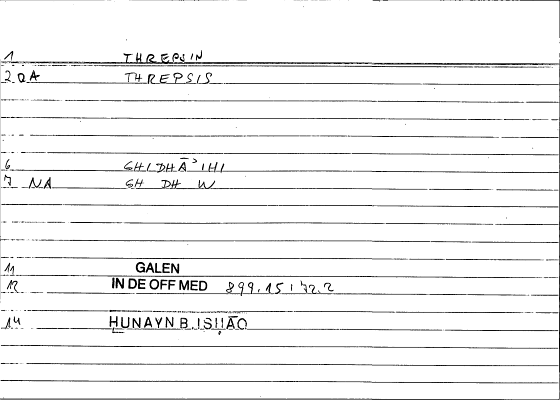 1 THREPSIN
2 0A THREPSIS
6 GHIDHĀʾIHI
7 NA GH DH W
11 GALEN
12 IN DE OFF MED 899.15 ; 72.2
14 ḤUNAYN B. ISḤĀQ